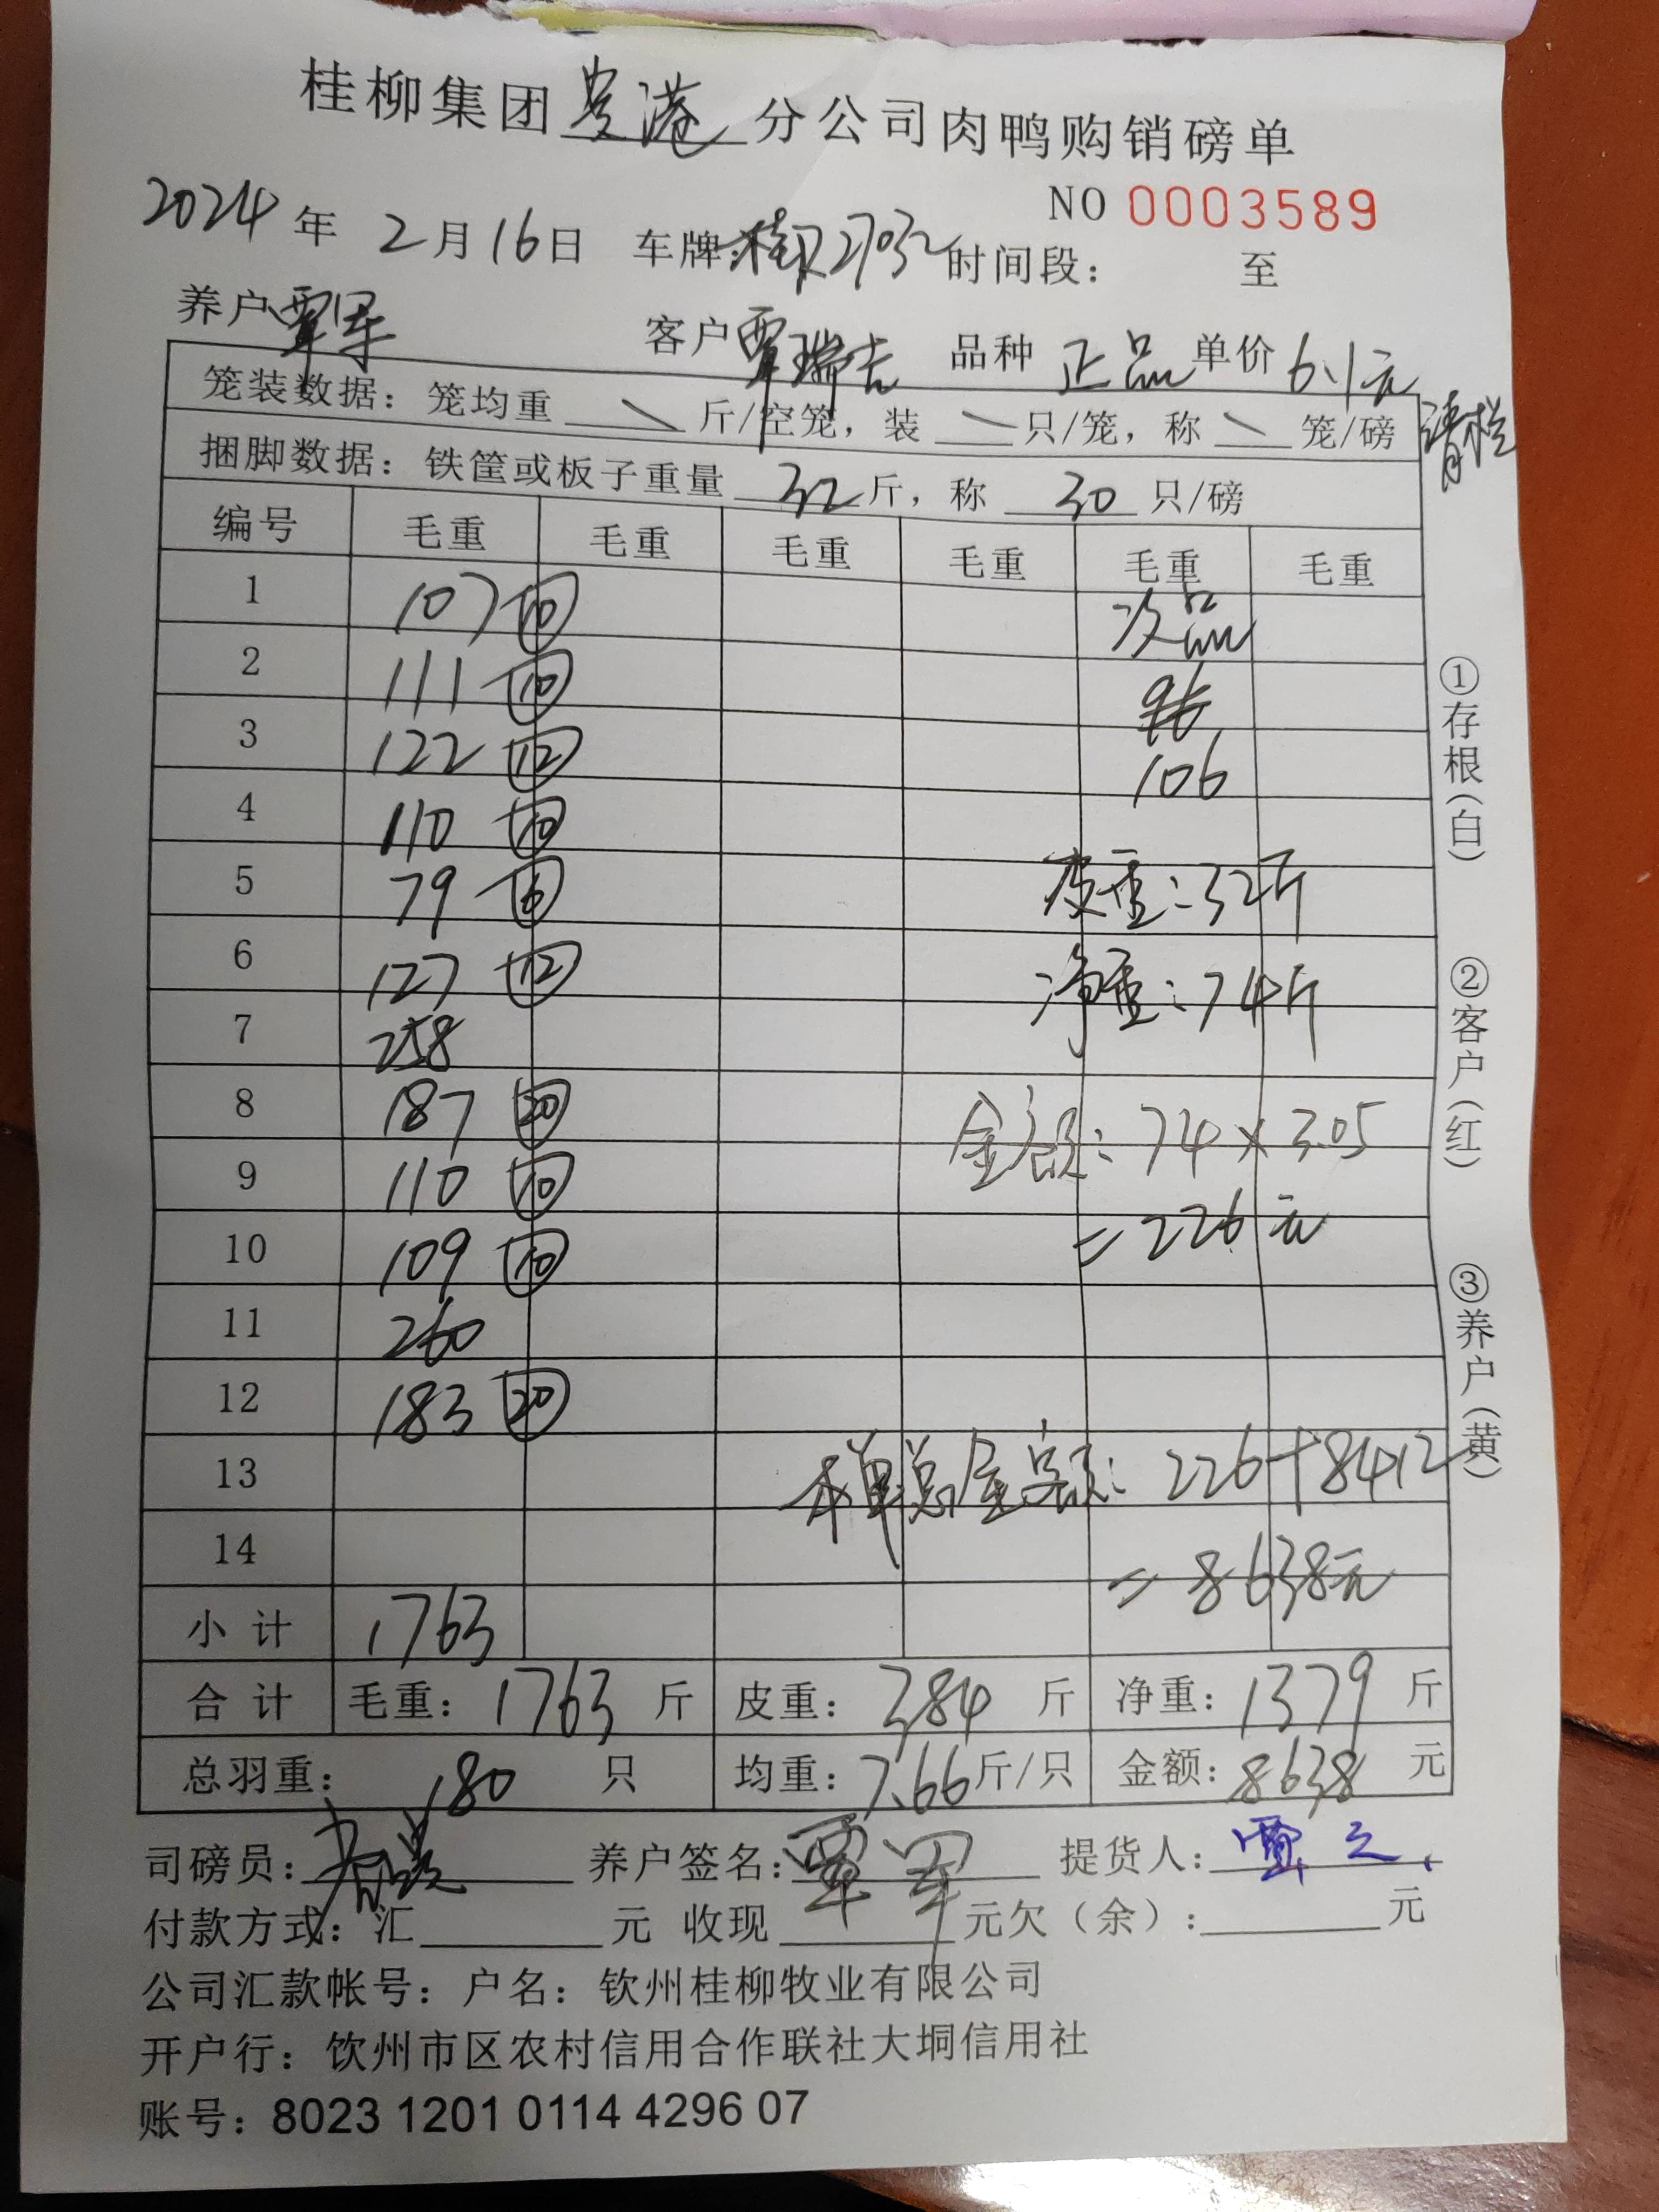 桂柳集团贵港分公司肉鸭购销磅单
NO 0003589
2024年2月16日 车牌:桂R2703 时间段: 至
养户 覃军 客户 覃瑞吉 品种 正品 单价 6.1元
清栏
笼装数据: 笼均重 \ 斤/空笼, 装 \ 只/笼, 称 \ 笼/磅
捆脚数据: 铁筐或板子重量 32 斤, 称 30 只/磅
编号 毛重 毛重 毛重 毛重 毛重 毛重
1 107 ⑩ 次品
2 111 ⑩
3 122 ⑫ 106
4 110 ⑩
5 79 ⑥ 皮重:32斤
6 127 ⑫ 净重:74斤
7 258
8 187 ⑳ 金额:74×3.05
9 110 ⑩ =226元
10 109 ⑩
11 260
12 183 ⑳
13 本单总金额:226+8412
14 =8638元
小计 1763
合计 毛重: 1763 斤 皮重: 384 斤 净重: 1379 斤
总羽重: 180 只 均重: 7.66 斤/只 金额: 8638 元
司磅员: 养户签名: 覃军 提货人:
付款方式: 汇 元 收现 元欠(余): 元
公司汇款帐号: 户名: 钦州桂柳牧业有限公司
开户行: 饮州市区农村信用合作联社大垌信用社
账号: 8023 1201 0114 4296 07
①存根(白)
②客户(红)
③养户(黄)